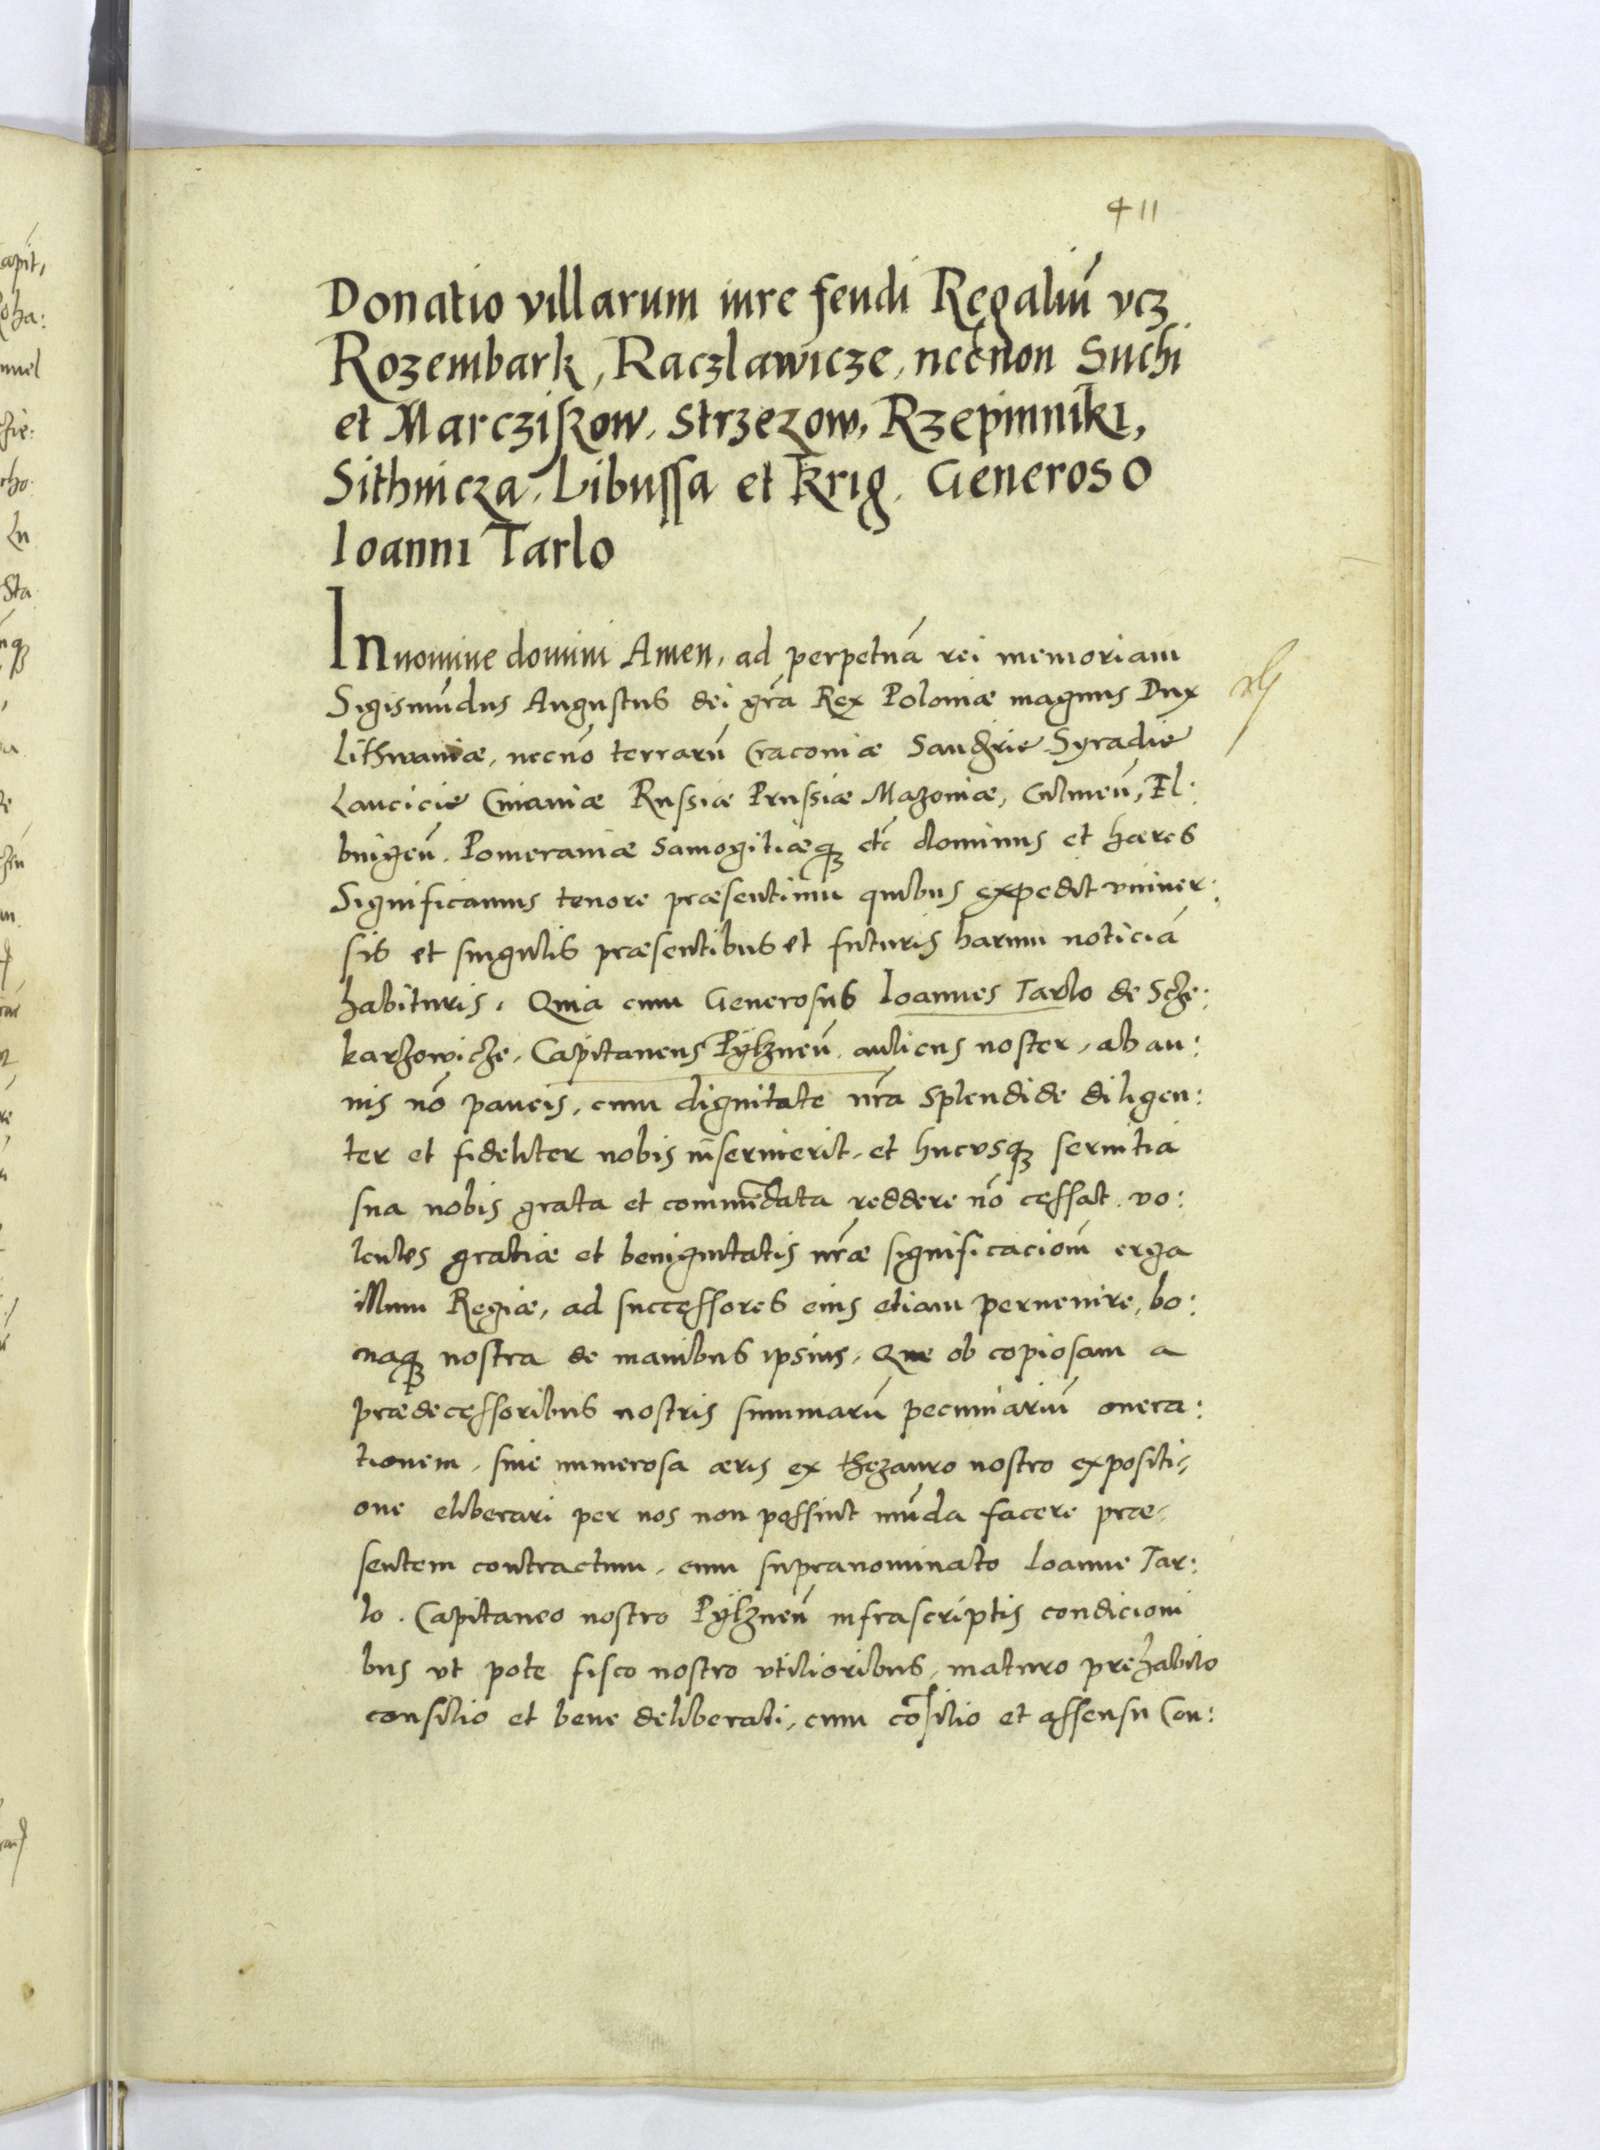 411
Donatio villarum iure feudi Regaliũ vcz
Rozembark, Raczlawicze, necnon Suchi
et Marcziszow, Strzezow, Rzepinniki,
Sithnicza, Libussa et Krig. Generoso
Ioanni Tarlo
In nomine domini Amen, ad perpetuã rei memoriam
Sigismũdus Augustus dei gr̃a Rex Poloniæ magnus Dux
Lithwaniæ, necnõ terrarũ Cracoviæ Sandzrie Syradie
Lancicie Cuiaviæ Russiæ Prussiæ Mazoviæ, Culmeñ, El:
bingeñ. Pomeraniæ Samogitiæqꝫ etc̃ dominus et hæres
Significamus tenore præsentium quibus expedit vniver:
sis et singulis præsentibus et futuris harum noticiã
habituris. Quia cum Generosus Ioannes Tarlo de Scze:
karzowicze, Capitaneus Pÿlzneñ. aulicus noster, ab an:
nis nõ paucis, cum dignitate nr̃a splendide diligen:
ter et fideliter nobis inservierit, et hucvsqꝫ servitia
sua nobis grata et commẽdata reddere nõ cessat. vo:
lentes gratiæ et benignitatis nr̃æ significacionẽ erga
illum Regiæ, ad successores eius etiam pervenire, bo:
naqꝫ nostra de manibus ipsius, Que ob copiosam a
prædecessoribus nostris summarũ pecuniariũ onera:
tionem, sine numerosa æris ex thezauro nostro expositi,
one eliberari per nos non possint mũda facere præ,
sentem contractum, cum supranominato Ioanne Tar:
lo. Capitaneo nostro Pÿlzneñ infrascriptis condicioni
bus vt pote fisco nostro vtilioribus, maturo prehabito
consilio et bene deliberati, cum cõsilio et assensu Con: